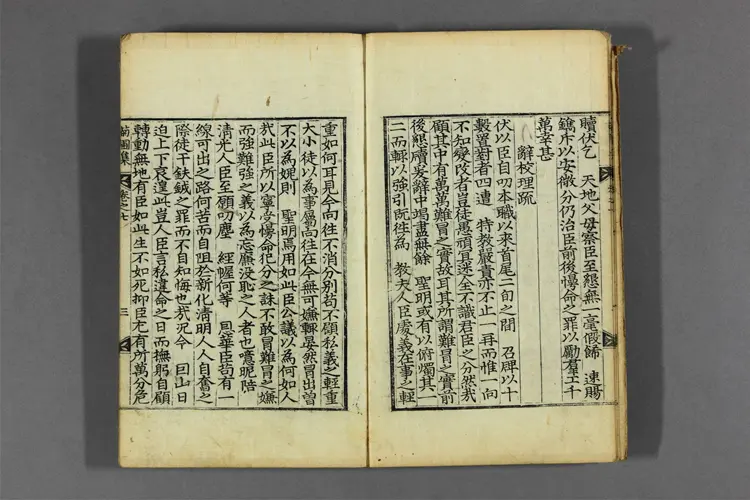 瀆伏乞 天地父母察臣至懇無一毫假餙 速賜
鐫斥以安微分仍治臣前後慢命之罪以勵羣工千
萬幸甚
辭校理疏
伏以臣自叨本職以来首尾二旬之間 召牌以十
數置對者四遭 特教嚴責亦不止一再而惟一向
不知變改者豈徒愚頑冥迷全不識君臣之分然哉
顧其中有萬萬難冒之實故耳其所謂難冒之實前
後懇牘畧辭中竭盡無餘 聖明或有以俯燭其一
二而輒以強引既徃為 教夫人臣處義在事之輕
重如何耳見今向徃不消分別苟不顧私義之輕重
大小徒以為事屬向徃在今無可嫌輒晏然冒出曾
不以為愧則 聖明焉用如此臣公議以為何如人
哉此臣所以寧受慢命犯分之誅不敢冒難冒之嫌
而強難強之義以為忘廉沒恥之人者也噫昵陪
清光人臣至願叨塵 經幄何等 恩華臣苟有一
線可出之路何苦而自阻於新化清明人人自奮之
際徒干鈇鉞之罪而不自知悔也哉況今 因山日
迫上下哀遑此豈人臣言私違命之日而撫躬自顧
轉動無地有臣如此生不如死抑臣尤有所萬分危
集 卷之七 三